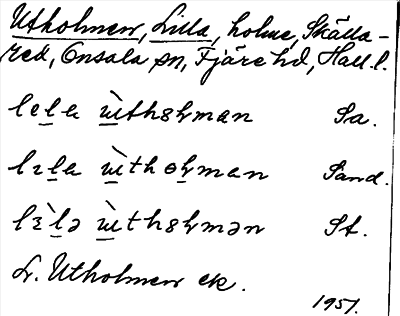 Utholmen, Lilla, holme, Skälla-
red, Onsala sn, Fjäre hd, Hall. l.
lela ùthoḷman Sa.
lɪla ùthoḷman Sand.
lɪ̀lə ùthoḷmən St.
L. Utholmen ek.
1951.